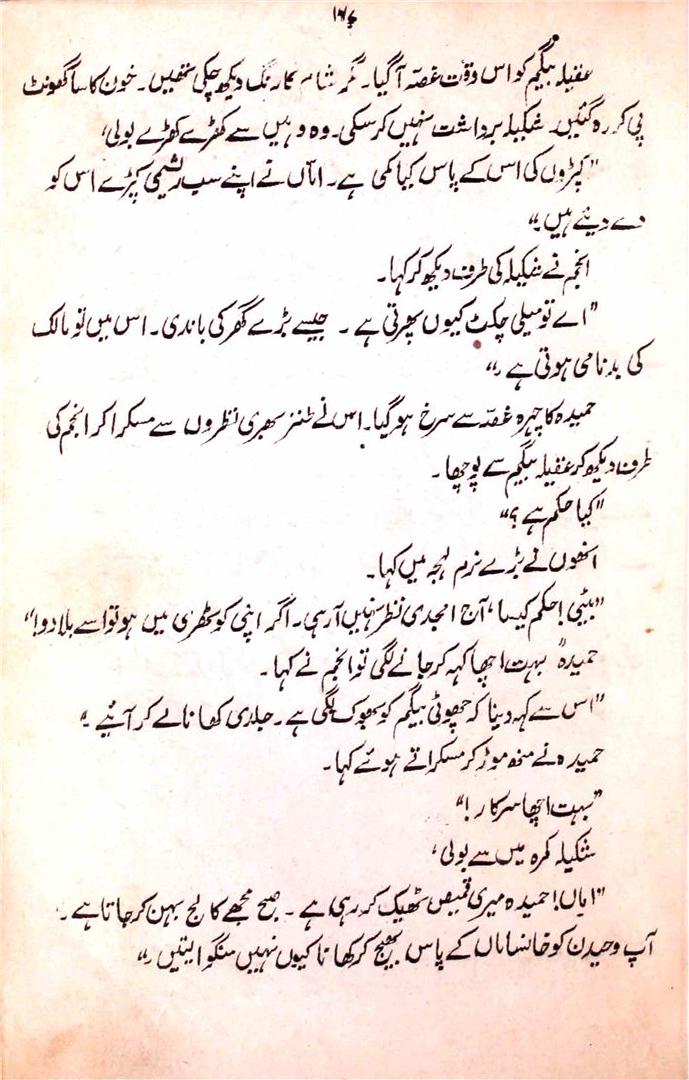 ۱۶۷
عقیلہ بیگم کو اس وقت غصّہ آگیا۔ مگر شام کا رنگ دیکھ چکی تھیں۔ خون کا سا گھونٹ
پی کر رہ گئیں۔ شکیلہ برداشت نہیں کرسکی۔ وہ وہیں سے کھڑے کھڑے بولی،
"کپڑوں کی اس کے پاس کیا کمی ہے۔ امّاں نے اپنے سب ریشمی کپڑے اس کو
دے دیئے ہیں۔"
انجم نے شکیلہ کی طرف دیکھ کر کہا۔
"اے تو میلی چکٹ کیوں پھرتی ہے ۔ جیسے بڑے گھر کی باندی۔ اس میں تو مالک
کی بدنامی ہوتی ہے۔"
حمیدہ کا چہرہ غصّہ سے سرخ ہوگیا۔ اس نے طنز بھری نظروں سے مسکرا کر انجم کی
طرف دیکھ کر عقیلہ بیگم سے پوچھا۔
"کیا حکم ہے؟"
انھوں نے بڑے نرم لہجہ میں کہا۔
"بیٹی! حکم کیسا، آج امجدی نظر نہیں آرہی۔ اگر اپنی کوٹھری میں ہو تو اسے بلا دو!"
حمیدہ "بہت اچھا کہہ کر جانے لگی تو انجم نے کہا۔
"اس سے کہہ دینا کہ چھوٹی بیگم کو بھوک لگی ہے۔ جلدی کھانا لے کر آئیے۔"
حمیدہ نے منھ موڑ کر مسکراتے ہوئے کہا۔
"بہت اچھا سرکار!"
شکیلہ کمرہ میں سے بولی،
"امّاں! حمیدہ میری قمیص ٹھیک کر رہی ہے ۔ صبح مجھے کالج پہن کر جانا ہے۔
آپ وحیدن کو خانساماں کے پاس بھیج کر کھانا کیوں نہیں منگوا لیتیں۔"